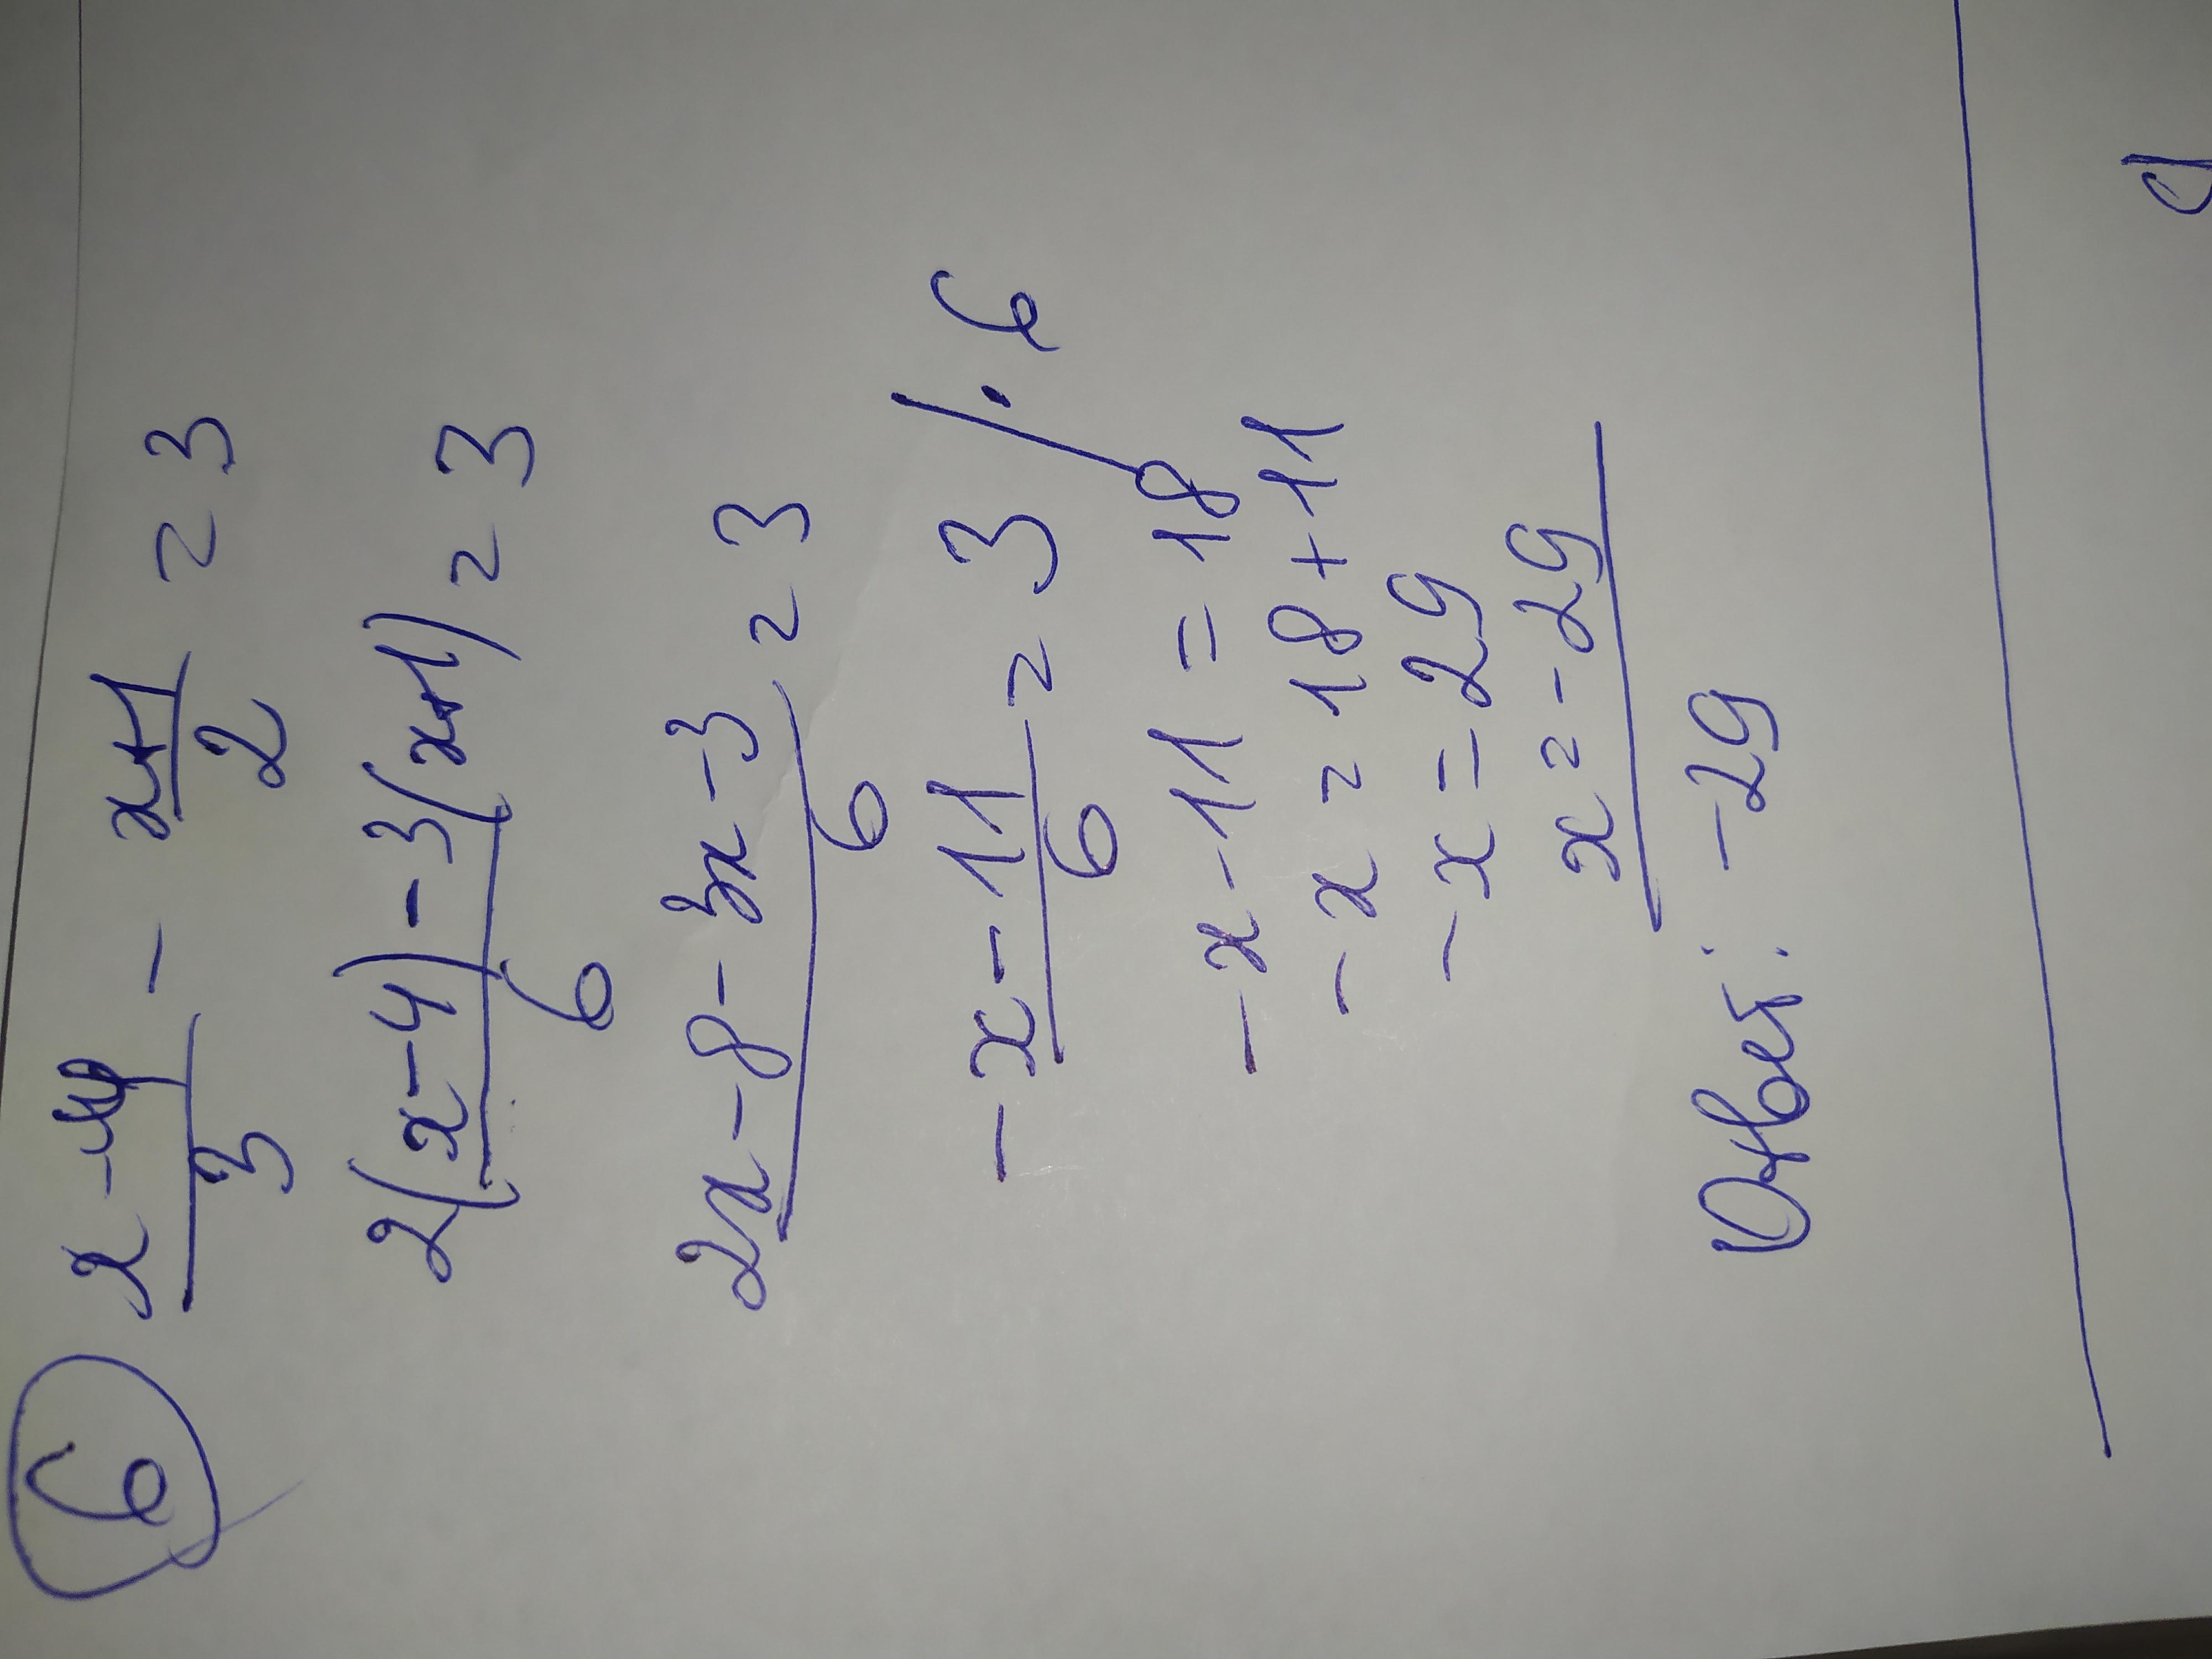 6 (x-4)/3 - (x+1)/2 = 3
(2(x-4)-3(x+1))/6 = 3
(2x-8-3x-3)/6 = 3
(-x-11)/6 = 3 /·6
-x-11 = 18
-x = 18+11
-x = 29
x = -29
Ответ: -29